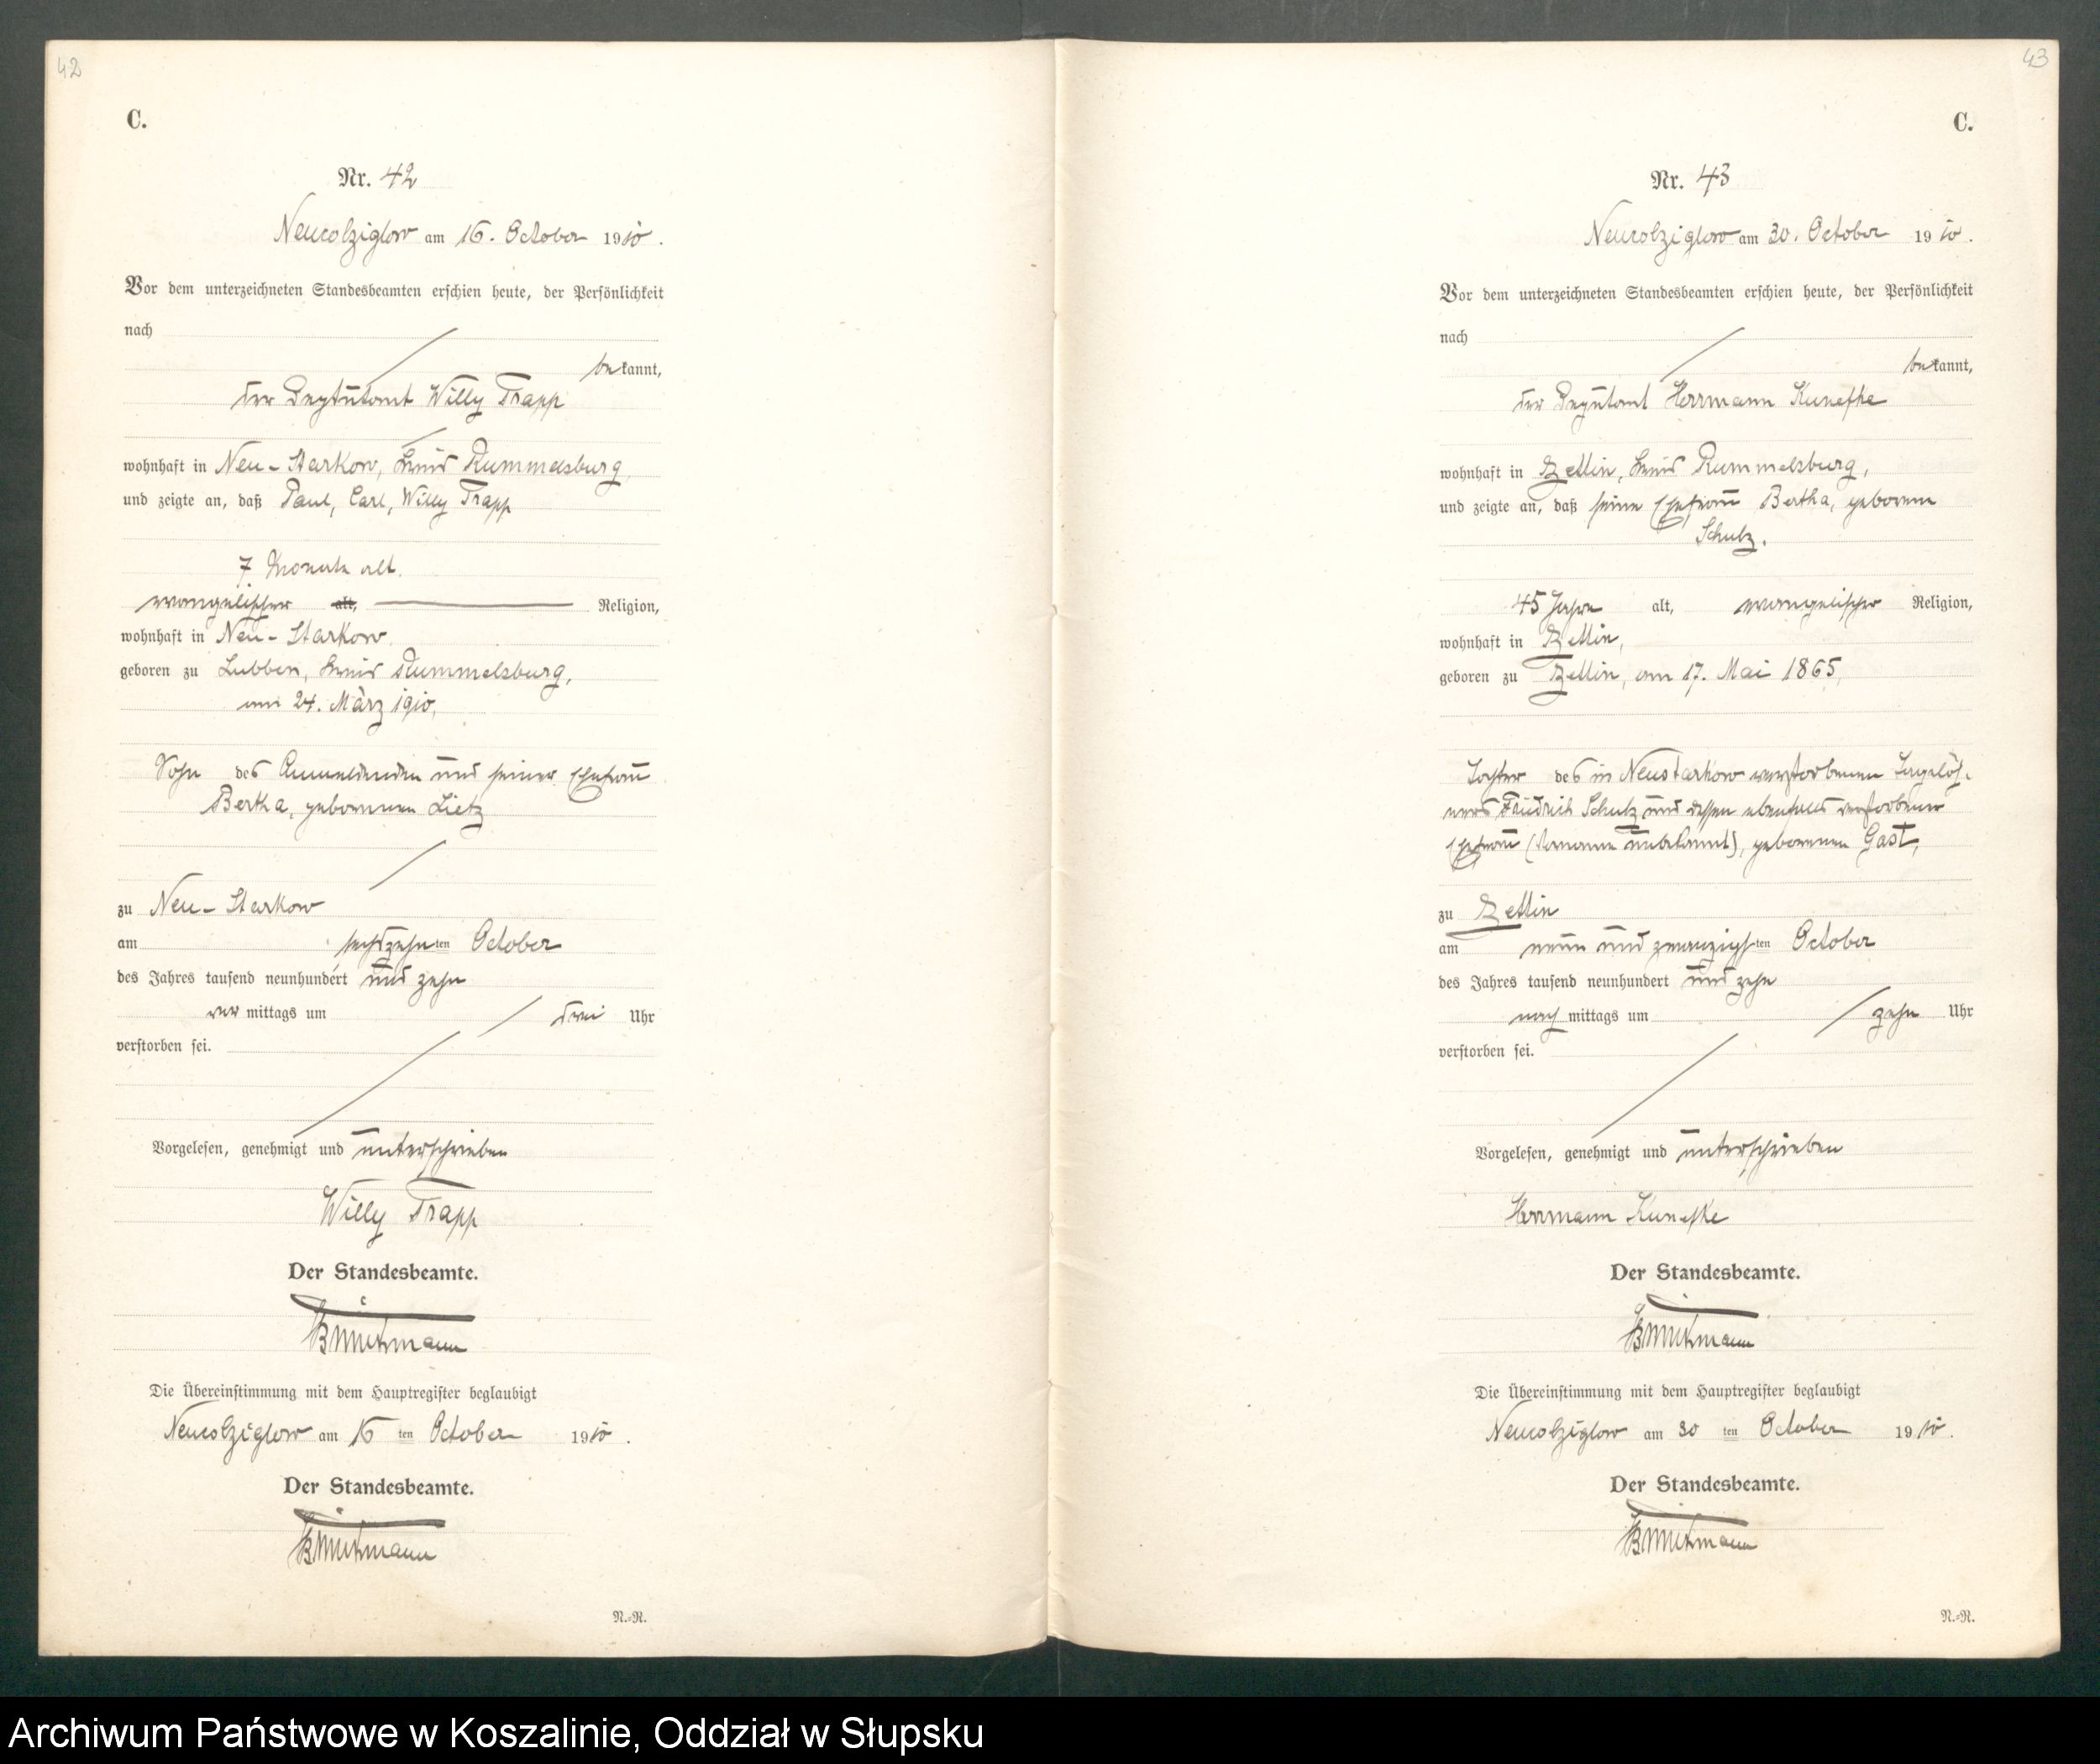 42
C.
Nr. 42
Neucolziglow am 16. October 1910.
Vor dem unterzeichneten Standesbeamten erschien heute, der Persönlichkeit
nach
bekannt,
der Deputant Willy Trapp
wohnhaft in Neu-Starkow, Kreis Rummelsburg,
und zeigte an, daß Paul, Carl, Willy Trapp
7 Monate alt.
evangelischer alt, Religion,
wohnhaft in Neu-Starkow.
geboren zu Lubben, Kreis Rummelsburg,
am 24. März 1910,
Sohn des Anmeldenden und seiner Ehefrau
Bertha, geborenen Lietz
zu Neu-Starkow
am sechszehnten October
des Jahres tausend neunhundert und zehn
vor mittags um drei Uhr
verstorben sei.
Vorgelesen, genehmigt und unterschrieben
Willy Trapp
Der Standesbeamte.
Die Übereinstimmung mit dem Hauptregister beglaubigt
Neucolziglow am 16 ten October 1910.
Der Standesbeamte.
N.-R.
43
C.
Nr. 43
Neucolziglow am 30. October 1910.
Vor dem unterzeichneten Standesbeamten erschien heute, der Persönlichkeit
nach
bekannt,
der Deputant Herrmann Kunefke
wohnhaft in Zettin, Kreis Rummelsburg,
und zeigte an, daß seine Ehefrau Bertha, geborene
Schulz.
45 Jahre alt, evangelischer Religion,
wohnhaft in Zettin,
geboren zu Zettin, am 17. Mai 1865,
Tochter des in Neustarkow verstorbenen Tagelöh-
ners Friedrich Schulz und dessen ebenfalls verstorbener
Ehefrau (Vorname unbekannt), geborenen Gast,
zu Zettin
am neun und zwanzigsten October
des Jahres tausend neunhundert und zehn
nach mittags um zehn Uhr
verstorben sei.
Vorgelesen, genehmigt und unterschrieben
Herrmann Kunefke
Der Standesbeamte.
Die Übereinstimmung mit dem Hauptregister beglaubigt
Neucolziglow am 30 ten October 1910.
Der Standesbeamte.
N.-R.
Archiwum Państwowe w Koszalinie, Oddział w Słupsku